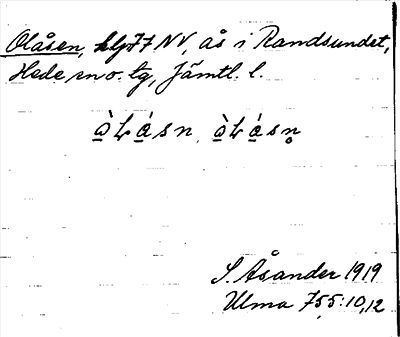 Olåsen, 77 NV, ås i Randsundet,
Hede sn o. tg, Jämtl. l.
S. Åsander 1919
Ulma 755:10,12